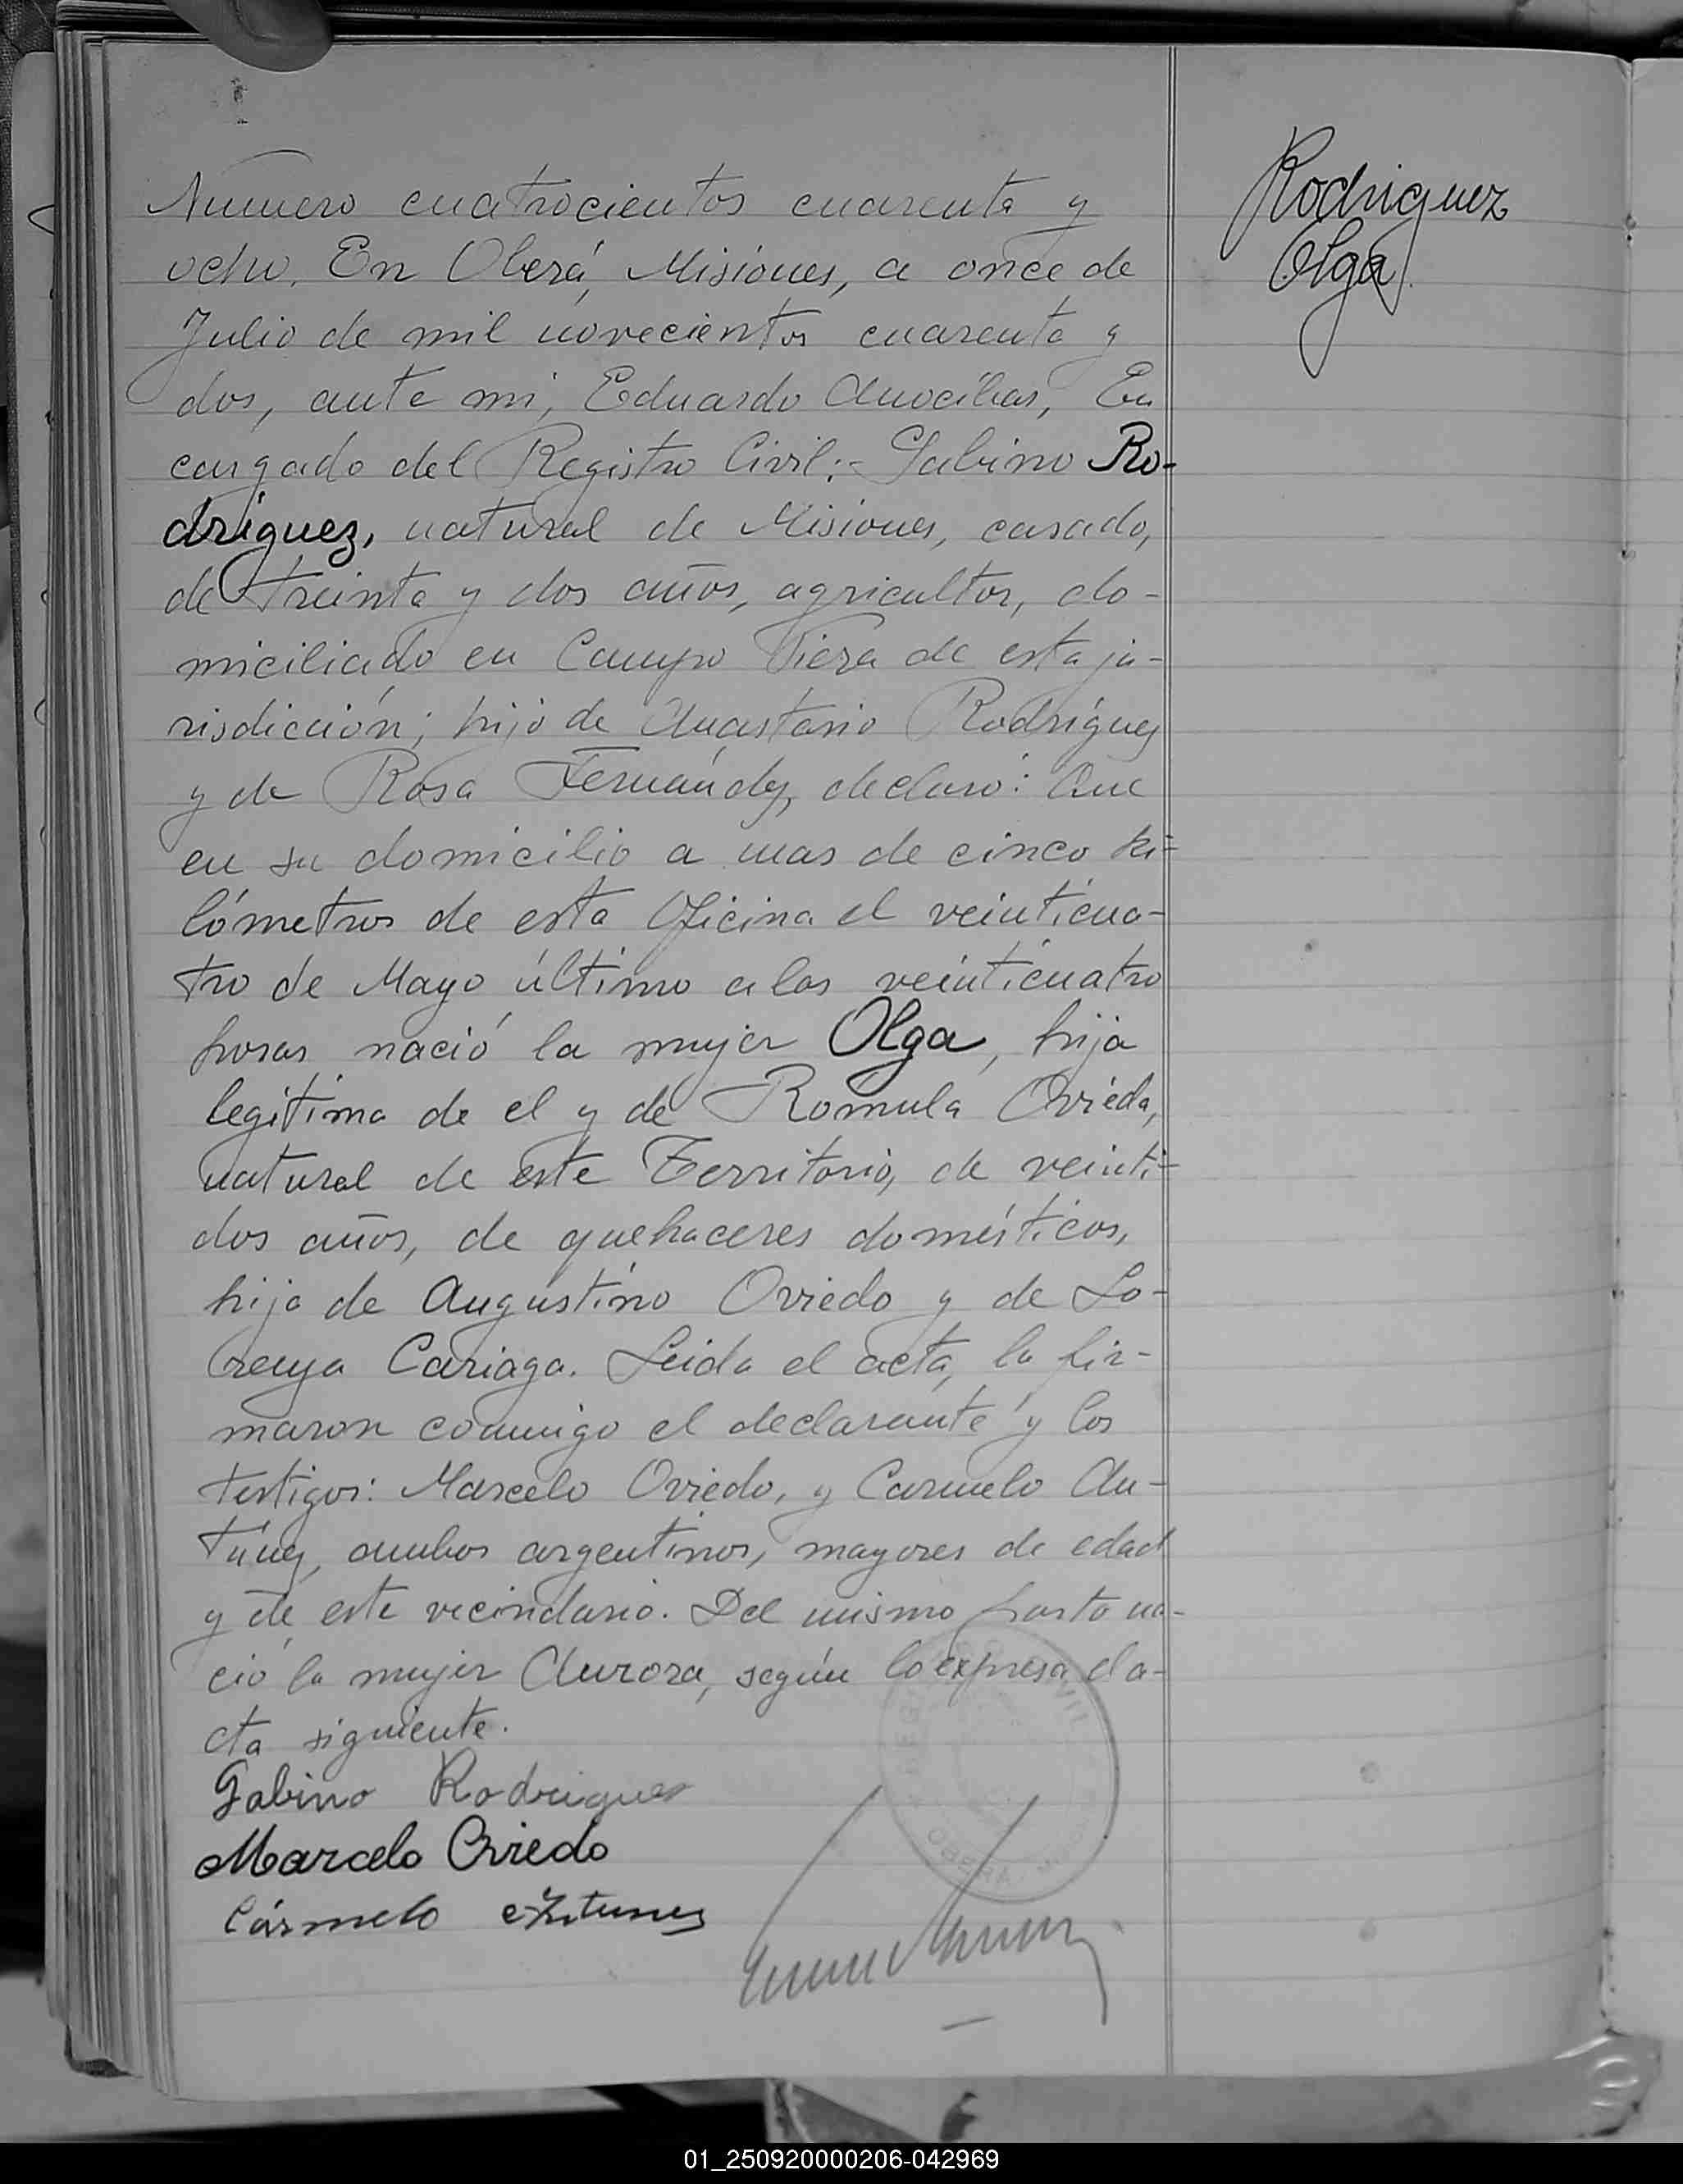 Rodriguez
Olga
Número cuatrocientos cuarenta y
ocho. En Oberá, Misiones, a once de
Julio de mil novecientos cuarenta y
dos, ante mi, Eduardo Anocibar, En
cargado del Registro Civil:- Gabino Ro-
driguez, natural de Misiones, casado,
de treinta y dos años, agricultor, do-
miciliado en Campo Viera de esta ju-
risdicción; hijo de Anastasio Rodríguez
y de Rosa Fernández, declaró: Que
en su domicilio a mas de cinco ki-
lómetros de esta Oficina el veinticua-
tro de Mayo último a las veinticuatro
horas nació la mujer Olga, hija
legítima de el y de Romula Ovieda,
natural de este Territorio, de veinti-
dos años, de quehaceres domésticos,
hija de Augustino Oviedo y de Lo-
renza Cariaga. Leida el acta, la fir-
maron conmigo el declarante y los
testigos: Marcelo Oviedo, y Carmelo An-
túnez, ambos argentinos, mayores de edad
y de este vecindario. Del mismo parto na-
ció la mujer Aurora, según lo expresa el a-
cta siguiente.
Gabino Rodriguez
Marcelo Oviedo
Cármelo Antunez
OBERA
01_250920000206-042969